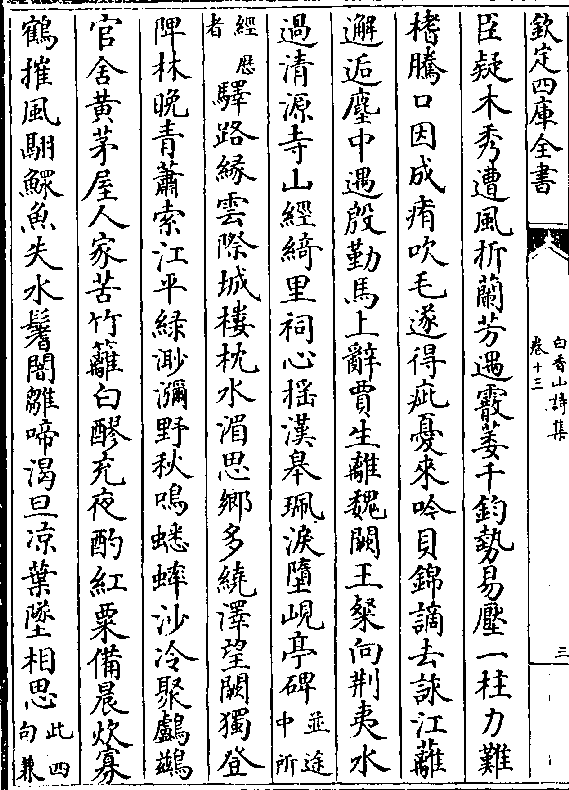 欽定四庫全書
白香山詩集
卷十三
三
臣疑木秀遭風折蘭芳遇霰萎千鈞勢易壓一柱力難
搘騰口因成痏吹毛遂得疵憂來吟貝錦謫去詠江蘺
邂逅塵中遇殷勤馬上辭賈生離魏闕王粲向荆夷水
過清源寺山經綺里祠心揺漢臯珮淚墮峴亭碑並途中所
經歴者驛路緣雲際城樓枕水湄思鄉多繞澤望闕獨登
陴林晩青蕭索江平緑渺瀰野秋鳴蟋蟀沙冷聚鸕鷀
官舍黄茅屋人家苦竹籬白醪充夜酌紅粟備晨炊寡
鶴摧風翮鰥魚失水鬐闇雛啼渴旦凉葉墜相思此四句兼